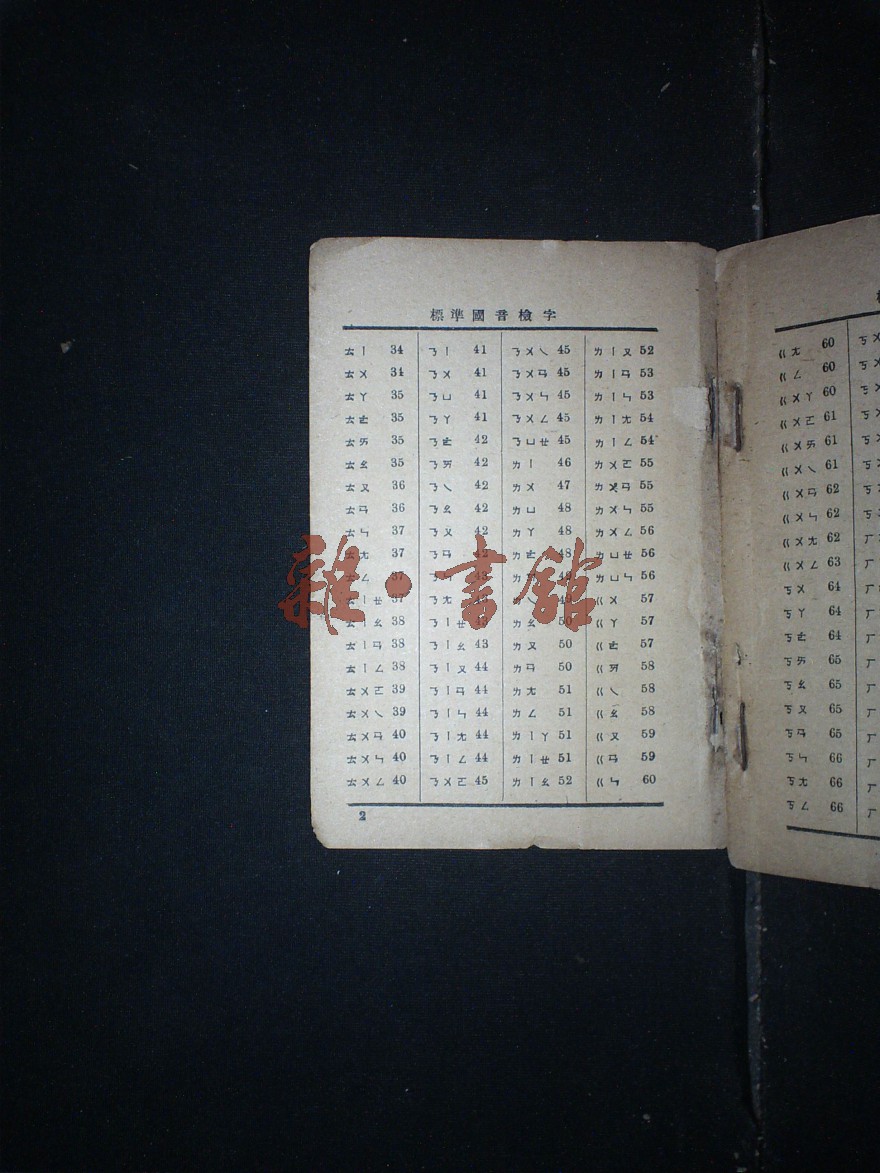 標準國音檢字
ㄊㄧ 34
ㄊㄨ 34
ㄊㄚ 35
ㄊㄜ 35
ㄊㄞ 35
ㄊㄠ 35
ㄊㄡ 36
ㄊㄢ 36
ㄊㄣ 37
ㄊㄤ 37
ㄊㄥ 37
ㄊㄧㄝ 37
ㄊㄧㄠ 38
ㄊㄧㄢ 38
ㄊㄧㄥ 38
ㄊㄨㄛ 39
ㄊㄨㄟ 39
ㄊㄨㄢ 40
ㄊㄨㄣ 40
ㄊㄨㄥ 40
ㄋㄧ 41
ㄋㄨ 41
ㄋㄩ 41
ㄋㄚ 41
ㄋㄜ 42
ㄋㄞ 42
ㄋㄟ 42
ㄋㄠ 42
ㄋㄡ 42
ㄋㄢ 42
ㄋㄣ 43
ㄋㄤ 43
ㄋㄧㄝ 43
ㄋㄧㄠ 43
ㄋㄧㄡ 44
ㄋㄧㄢ 44
ㄋㄧㄣ 44
ㄋㄧㄤ 44
ㄋㄧㄥ 44
ㄋㄨㄛ 45
ㄋㄨㄟ 45
ㄋㄨㄢ 45
ㄋㄨㄣ 45
ㄋㄨㄥ 45
ㄋㄩㄝ 45
ㄌㄧ 46
ㄌㄨ 47
ㄌㄩ 48
ㄌㄚ 48
ㄌㄜ 48
ㄌㄞ 49
ㄌㄟ 49
ㄌㄠ 50
ㄌㄡ 50
ㄌㄢ 50
ㄌㄤ 51
ㄌㄥ 51
ㄌㄧㄚ 51
ㄌㄧㄝ 51
ㄌㄧㄠ 52
ㄌㄧㄡ 52
ㄌㄧㄢ 53
ㄌㄧㄣ 53
ㄌㄧㄤ 54
ㄌㄧㄥ 54
ㄌㄨㄛ 55
ㄌㄨㄢ 55
ㄌㄨㄣ 55
ㄌㄨㄥ 56
ㄌㄩㄝ 56
ㄌㄩㄣ 56
ㄍㄨ 57
ㄍㄚ 57
ㄍㄜ 57
ㄍㄞ 58
ㄍㄟ 58
ㄍㄠ 58
ㄍㄡ 59
ㄍㄢ 59
ㄍㄣ 60
2
雜·書館
ㄍㄤ 60
ㄍㄥ 60
ㄍㄨㄚ 60
ㄍㄨㄛ 61
ㄍㄨㄞ 61
ㄍㄨㄟ 61
ㄍㄨㄢ 62
ㄍㄨㄣ 62
ㄍㄨㄤ 62
ㄍㄨㄥ 63
ㄎㄨ 64
ㄎㄚ 64
ㄎㄜ 64
ㄎㄞ 65
ㄎㄠ 65
ㄎㄡ 65
ㄎㄢ 65
ㄎㄣ 66
ㄎㄤ 66
ㄎㄥ 66